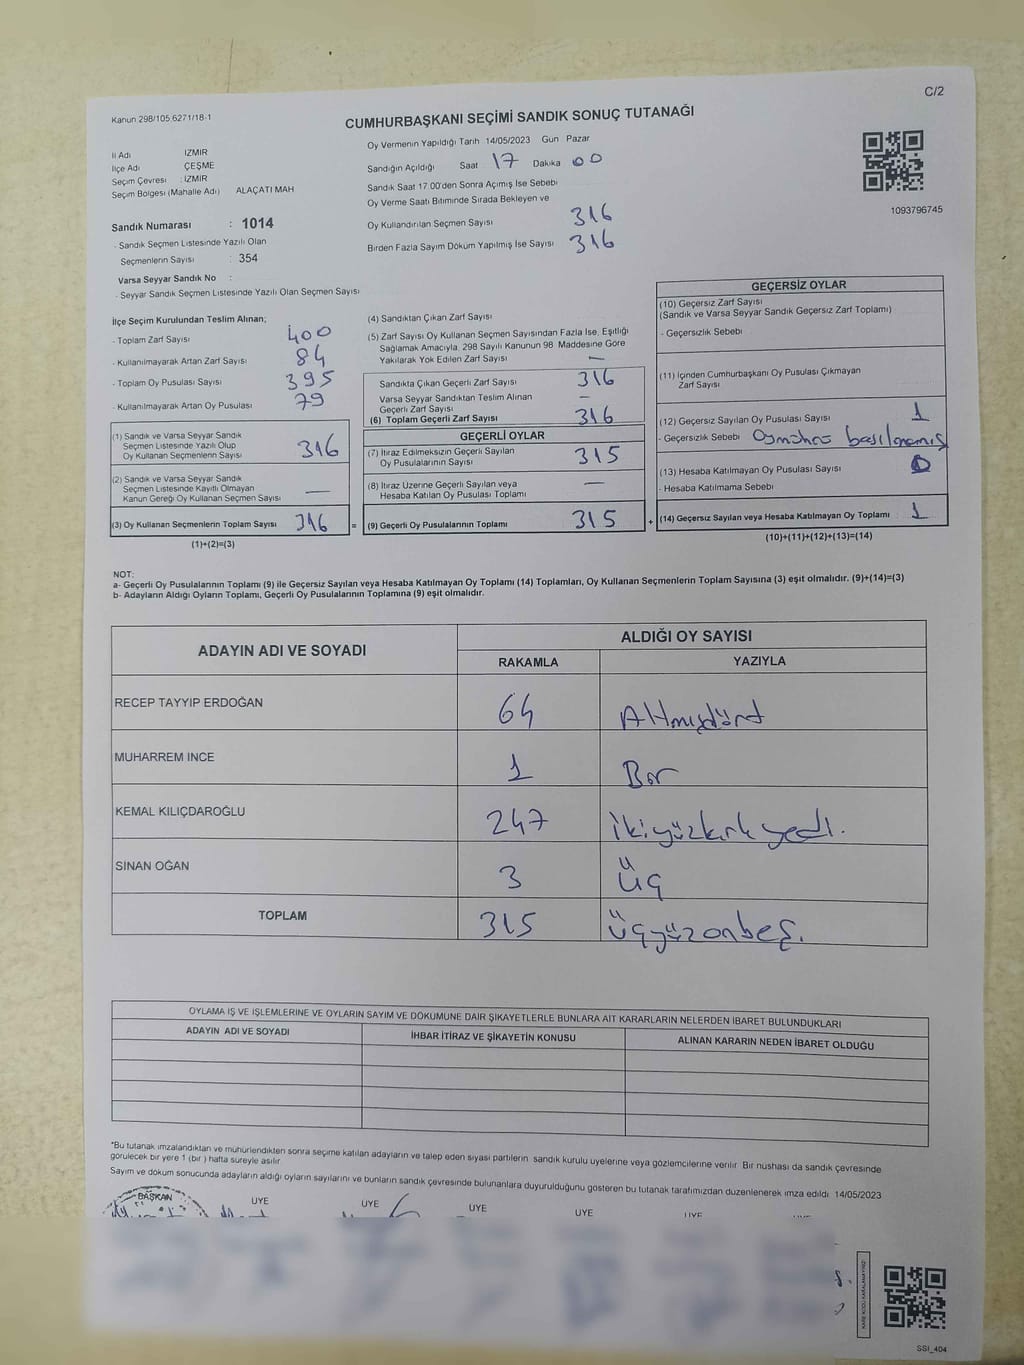 C/2
Kanun 298/105 6271/18-1
CUMHURBAŞKANI SEÇİMİ SANDIK SONUÇ TUTANAĞI
İl Adı İZMİR
İlçe Adı ÇEŞME
Seçim Çevresi : İZMİR
Seçim Bölgesi (Mahalle Adı) ALAÇATI MAH
Sandık Numarası : 1014
- Sandık Seçmen Listesinde Yazılı Olan
Seçmenlerin Sayısı : 354
Varsa Seyyar Sandık No :
- Seyyar Sandık Seçmen Listesinde Yazılı Olan Seçmen Sayısı
Oy Vermenin Yapıldığı Tarih 14/05/2023 Gün Pazar
Sandığın Açıldığı Saat 17 Dakika 00
Sandık Saat 17.00'den Sonra Açımış İse Sebebi
Oy Verme Saati Bitiminde Sırada Bekleyen ve
Oy Kullandırılan Seçmen Sayısı 316
Birden Fazla Sayım Döküm Yapılmış İse Sayısı 316
1093796745
İlçe Seçim Kurulundan Teslim Alınan;
- Toplam Zarf Sayısı 400
- Kullanılmayarak Artan Zarf Sayısı 84
- Toplam Oy Pusulası Sayısı 395
- Kullanılmayarak Artan Oy Pusulası 79
(1) Sandık ve Varsa Seyyar Sandık
Seçmen Listesinde Yazılı Olup
Oy Kullanan Seçmenlerin Sayısı 316
(2) Sandık ve Varsa Seyyar Sandık
Seçmen Listesinde Kayıtlı Olmayan
Kanun Gereği Oy Kullanan Seçmen Sayısı —
(3) Oy Kullanan Seçmenlerin Toplam Sayısı 316 =
(1)+(2)=(3)
(4) Sandıktan Çıkan Zarf Sayısı
(5) Zarf Sayısı Oy Kullanan Seçmen Sayısından Fazla İse, Eşitliği
Sağlamak Amacıyla, 298 Sayılı Kanunun 98. Maddesine Göre
Yakılarak Yok Edilen Zarf Sayısı —
Sandıkta Çıkan Geçerli Zarf Sayısı 316
Varsa Seyyar Sandıktan Teslim Alınan
Geçerli Zarf Sayısı —
(6) Toplam Geçerli Zarf Sayısı 316
GEÇERLİ OYLAR
(7) İtiraz Edilmeksizin Geçerli Sayılan
Oy Pusulalarının Sayısı 315
(8) İtiraz Üzerine Geçerli Sayılan veya
Hesaba Katılan Oy Pusulası Toplamı —
(9) Geçerli Oy Pusulalarının Toplamı 315 +
GEÇERSİZ OYLAR
(10) Geçersiz Zarf Sayısı
(Sandık ve Varsa Seyyar Sandık Geçersiz Zarf Toplamı)
- Geçersizlik Sebebi
(11) İçinden Cumhurbaşkanı Oy Pusulası Çıkmayan
Zarf Sayısı
(12) Geçersiz Sayılan Oy Pusulası Sayısı 1
- Geçersizlik Sebebi
(13) Hesaba Katılmayan Oy Pusulası Sayısı 0
- Hesaba Katılmama Sebebi
(14) Geçersiz Sayılan veya Hesaba Katılmayan Oy Toplamı 1
(10)+(11)+(12)+(13)=(14)
NOT:
a- Geçerli Oy Pusulalarının Toplamı (9) ile Geçersiz Sayılan veya Hesaba Katılmayan Oy Toplamı (14) Toplamları, Oy Kullanan Seçmenlerin Toplam Sayısına (3) eşit olmalıdır. (9)+(14)=(3)
b- Adayların Aldığı Oyların Toplamı, Geçerli Oy Pusulalarının Toplamına (9) eşit olmalıdır.
ADAYIN ADI VE SOYADI ALDIĞI OY SAYISI
RAKAMLA YAZIYLA
RECEP TAYYIP ERDOĞAN 64 Altmışdört
MUHARREM İNCE 1 Bir
KEMAL KILIÇDAROĞLU 247 ikiyüzkırkyedi.
SİNAN OĞAN 3 üç
TOPLAM 315 üçyüzonbeş.
OYLAMA İŞ VE İŞLEMLERİNE VE OYLARIN SAYIM VE DÖKÜMÜNE DAİR ŞİKAYETLERLE BUNLARA AİT KARARLARIN NELERDEN İBARET BULUNDUKLARI
ADAYIN ADI VE SOYADI İHBAR İTİRAZ VE ŞİKAYETİN KONUSU ALINAN KARARIN NEDEN İBARET OLDUĞU
*Bu tutanak imzalandıktan ve mühürlendikten sonra seçime katılan adayların ve talep eden siyasi partilerin sandık kurulu üyelerine veya gözlemcilerine verilir. Bir nüshası da sandık çevresinde
görülecek bir yere 1 (bir ) hafta süreyle asılır.
Sayım ve döküm sonucunda adayların aldığı oyların sayılarını ve bunların sandık çevresinde bulunanlara duyurulduğunu gösteren bu tutanak tarafımızdan düzenlenerek imza edildi. 14/05/2023
BAŞKAN ÜYE ÜYE ÜYE ÜYE ÜYE
KARE KODU KARALAMAYINIZ!
SSI_404